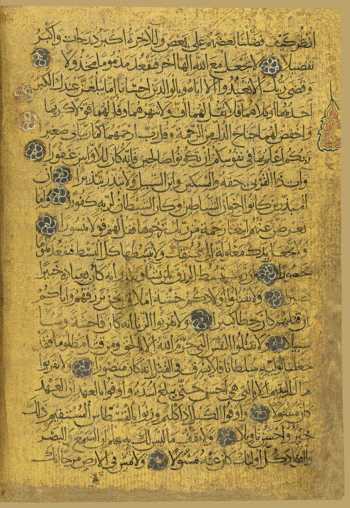 انظر كيف فضلنا بعضهم على بعض وللاخرة اكبر درجات واكبر
تفضيلا لا تجعل مع الله الها اخر فتقعد مذموما مخذولا
وقضى ربك الا تعبدوا الا اياه وبالوالدين احسانا اما يبلغن عندك الكبر
احدهما او كلاهما فلا تقل لهما اف ولا تنهرهما وقل لهما قولا كريما
واخفض لهما جناح الذل من الرحمة وقل رب ارحمهما كما ربياني صغيرا
ربكم اعلم بما في نفوسكم ان تكونوا صالحين فانه كان للاوابين غفورا
وات ذا القربى حقه والمسكين وابن السبيل ولا تبذر تبذيرا ان
المبذرين كانوا اخوان الشياطين وكان الشيطان لربه كفورا واما
تعرضن عنهم ابتغاء رحمة من ربك ترجوها فقل لهم قولا ميسورا
ولا تجعل يدك مغلولة الى عنقك ولا تبسطها كل البسط فتقعد ملوما
محسورا ان ربك يبسط الرزق لمن يشاء ويقدر انه كان بعباده خبيرا
بصيرا ولا تقتلوا اولادكم خشية املاق نحن نرزقهم واياكم
ان قتلهم كان خطا كبيرا ولا تقربوا الزنا انه كان فاحشة وساء
سبيلا ولا تقتلوا النفس التي حرم الله الا بالحق ومن قتل مظلوما فقد
جعلنا لوليه سلطانا فلا يسرف في القتل انه كان منصورا ولا تقربوا
مال اليتيم الا بالتي هي احسن حتى يبلغ اشده واوفوا بالعهد ان العهد
كان مسئولا واوفوا الكيل اذا كلتم وزنوا بالقسطاس المستقيم ذلك
خير واحسن تاويلا ولا تقف ما ليس لك به علم ان السمع والبصر
والفؤاد كل اولئك كان عنه مسئولا ولا تمش في الارض مرحا انك